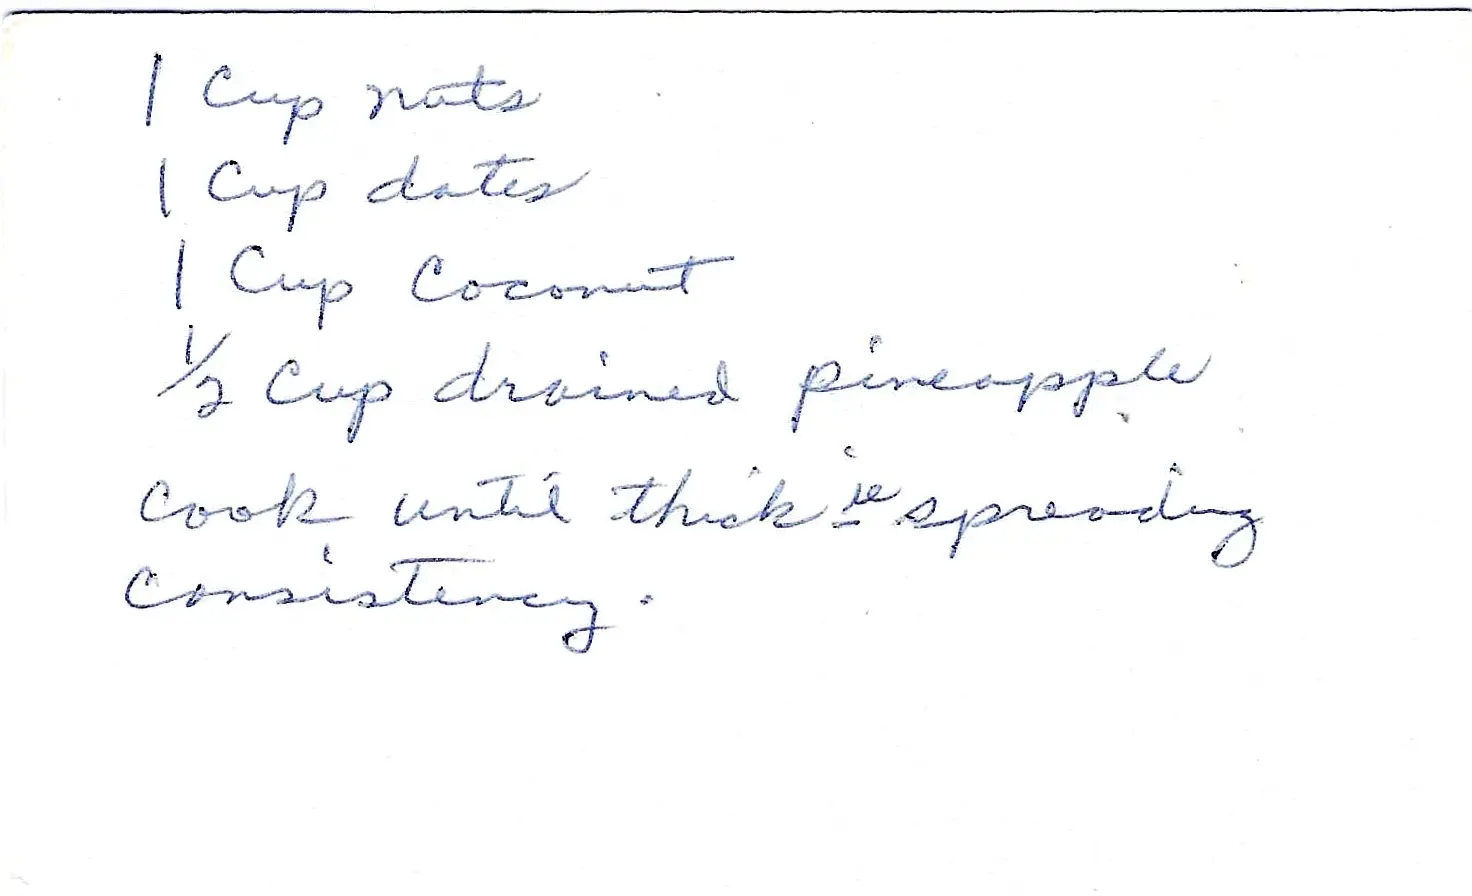 1 Cup nuts
1 Cup dates
1 Cup Coconut
1/2 Cup drained pineapple
Cook until thick ie spreading
Consistency.